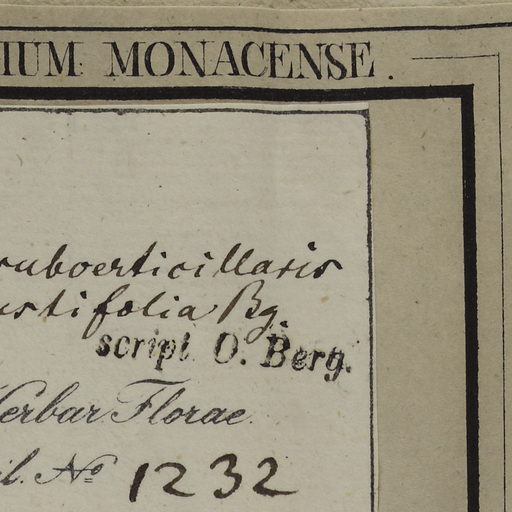 IUM MONACENSE.
suboerticillaris
ustifolia Bg.
script. O. Berg.
Herbar. Florae
il. No 1232